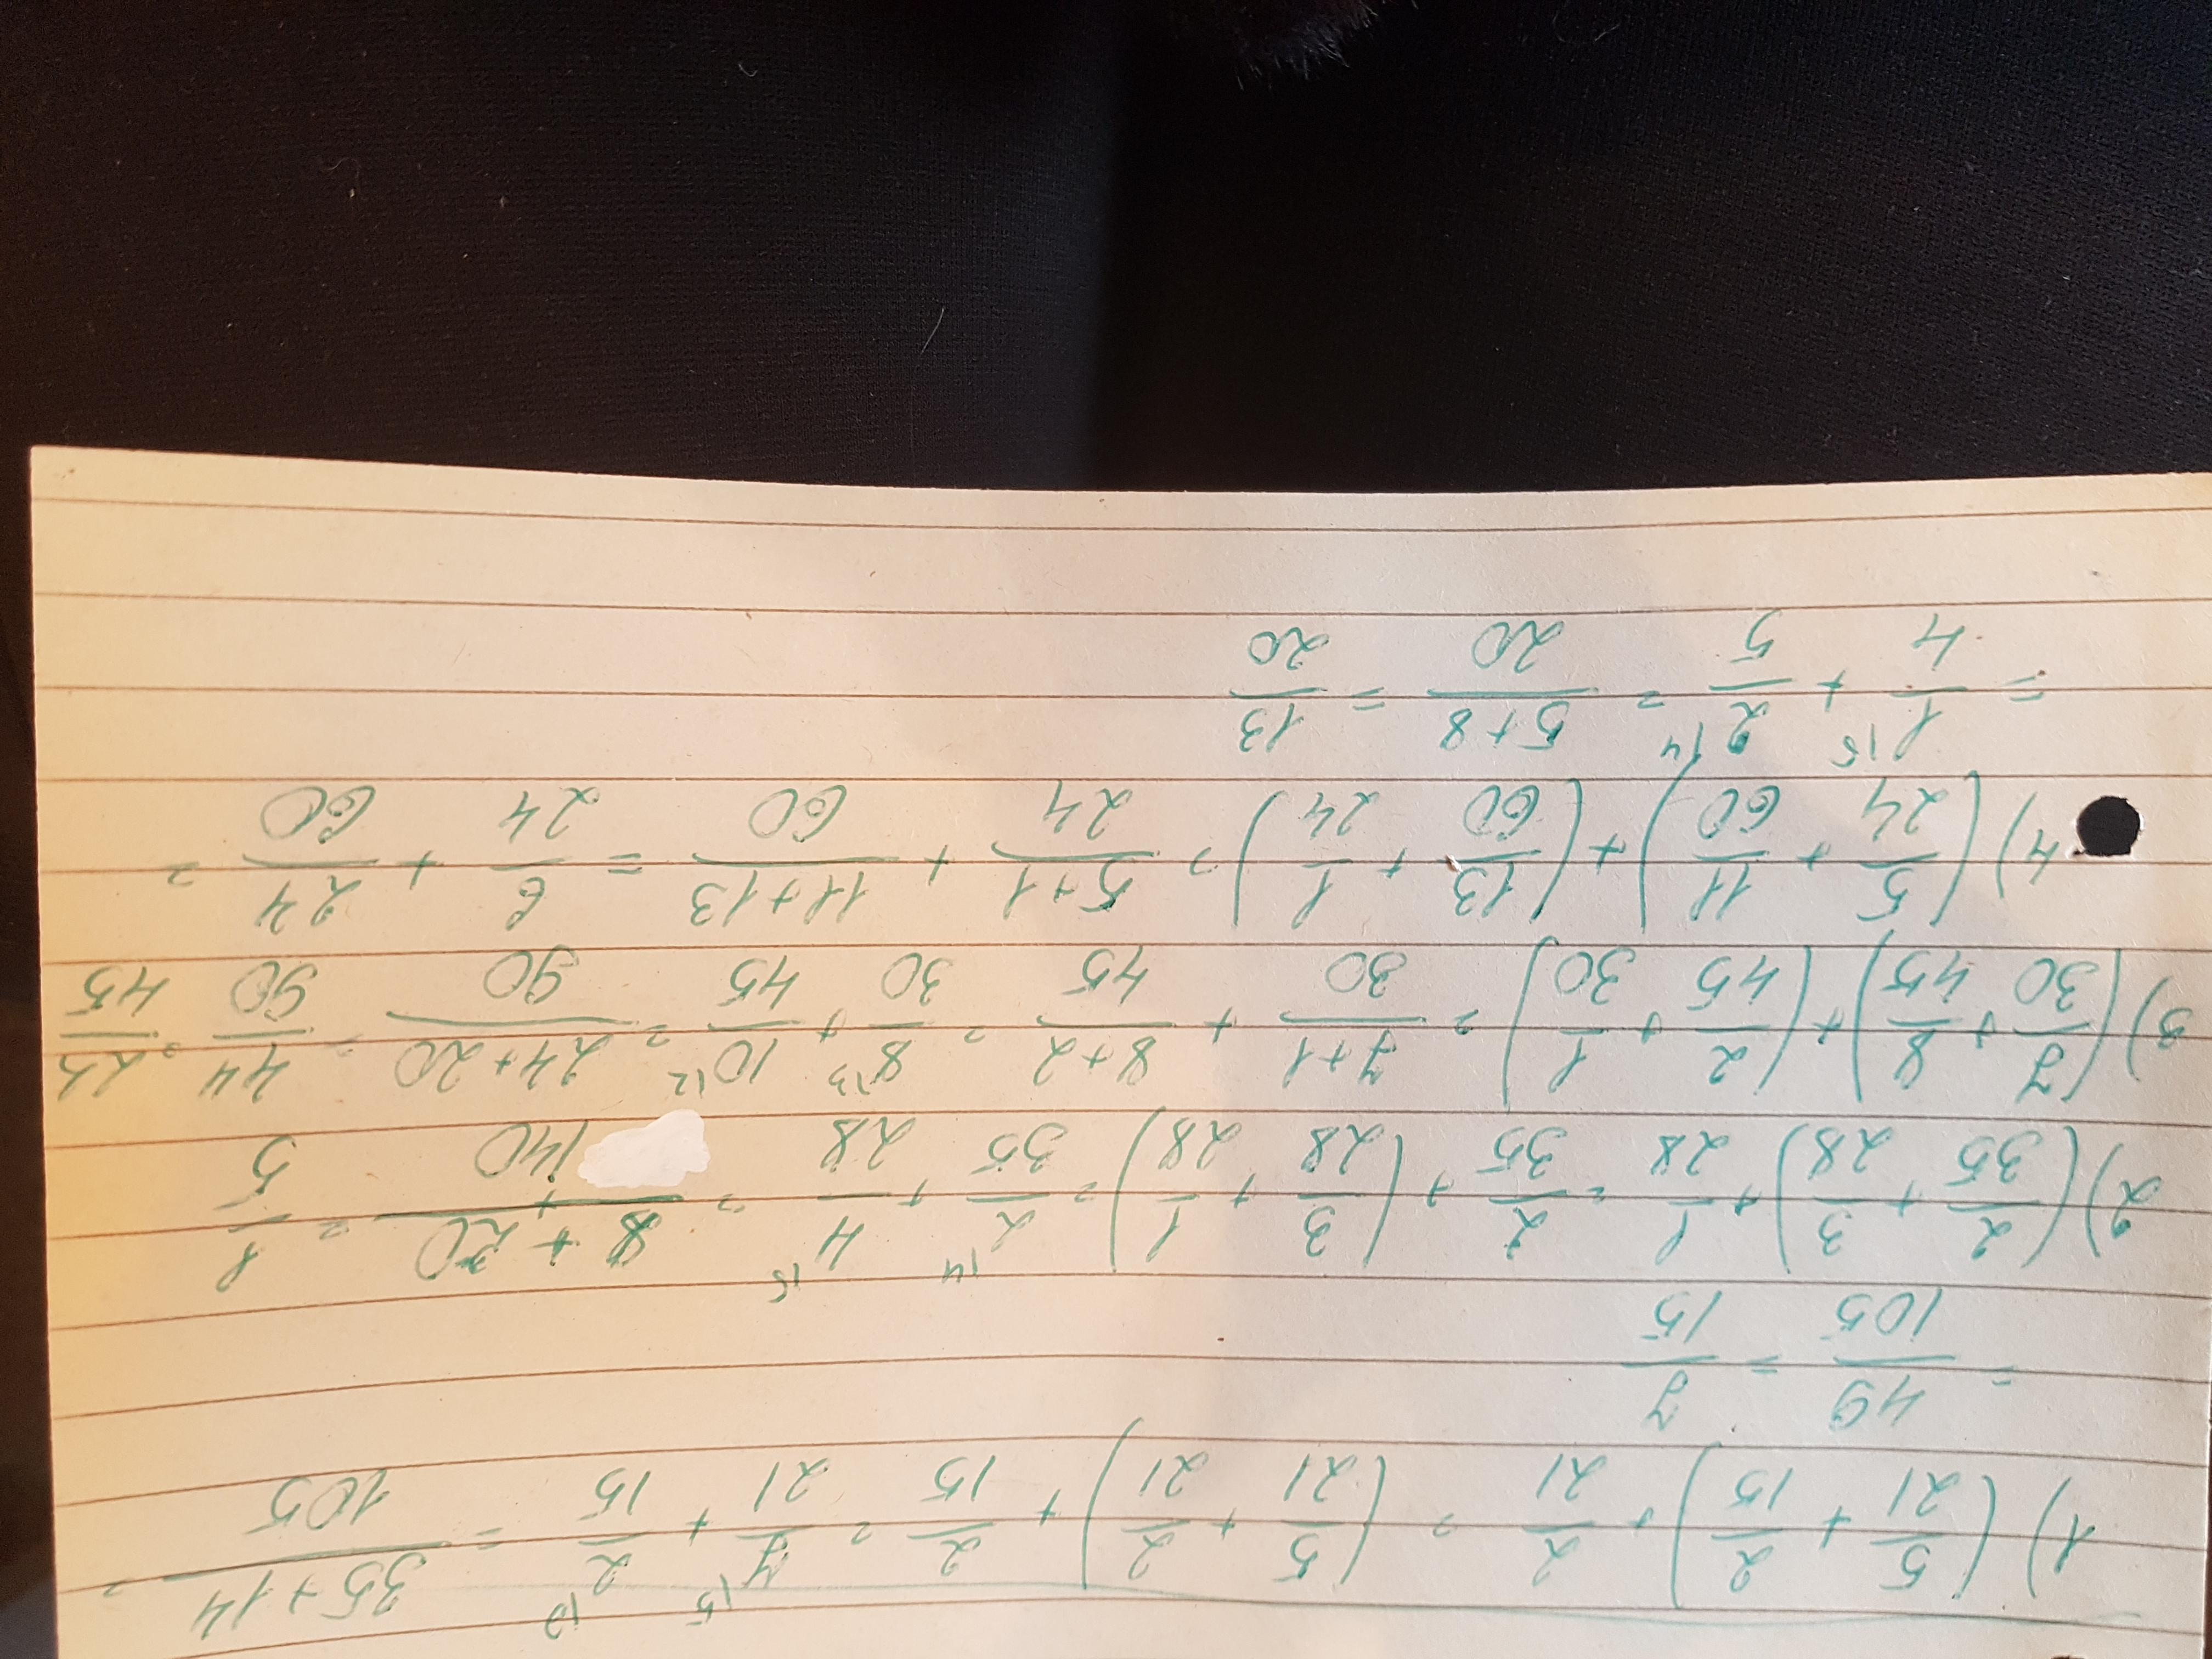 1) (5/21 + 2/15) + 2/21 = (5/21 + 2/21) + 2/15 = 7/21 ^15 + 2/15 ^17 = 35+14/105 =
= 49/105 = 7/15
2) (2/35 + 3/28) + 1/28 = 2/35 + (3/28 + 1/28) = 2/35 ^14 + 4/28 ^15 = 8+20/140 = 1/5
3) (7/30 + 8/45) + (2/45 + 1/30) = 7+1/30 + 8+2/45 = 8/30 ^13 + 10/45 ^12 = 24+20/90 = 44/90 = 22/45
4) (5/24 + 11/60) + (13/60 + 1/24) = 5+1/24 + 11+13/60 = 6/24 + 24/60 =
= 1/4 ^15 + 2/5 ^14 = 5+8/20 = 13/20